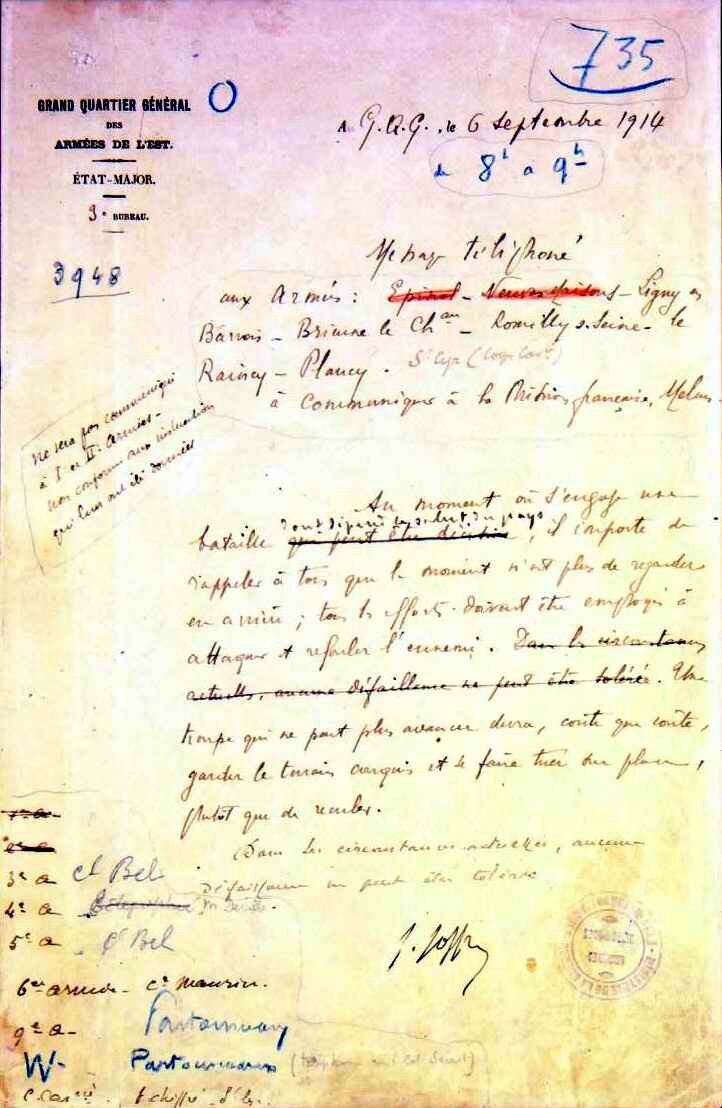 735
GRAND QUARTIER GÉNÉRAL
DES
ARMÉES DE L'EST.
ÉTAT-MAJOR.
3e BUREAU.
3948
A G.Q.G., le 6 septembre 1914
de 8h à 9h
Message téléphoné
aux Armées : Epinal - Neuves Maisons - Ligny en
Barrois - Brienne le Chau - Romilly s. Seine - le
Raincy - Plancy. St Cyr (Corps Cavie)
à communiquer à la Mission française, Melun.
ne sera pas communiqué
à I et II Armées -
non conforme aux instructions
qui leur ont été données
Au moment où s'engage une
dont dépend le salut du pays
bataille qui peut être décisive, il importe de
rappeler à tous que le moment n'est plus de regarder
en arrière ; tous les efforts doivent être employés à
attaquer et refouler l'ennemi. Dans les circonstances
actuelles, aucune défaillance ne peut être tolérée. Une
troupe qui ne peut plus avancer devra, coûte que coûte,
garder le terrain conquis et se faire tuer sur place,
plutôt que de reculer.
Dans les circonstances actuelles, aucune
défaillance ne peut être tolérée
J. Joffre
1re a
2e a
3e a Ct Bel
4e a
5e a Ct Bel
6e armée - Ce Maurin.
9e a - Partouneaux
W - Partouneaux